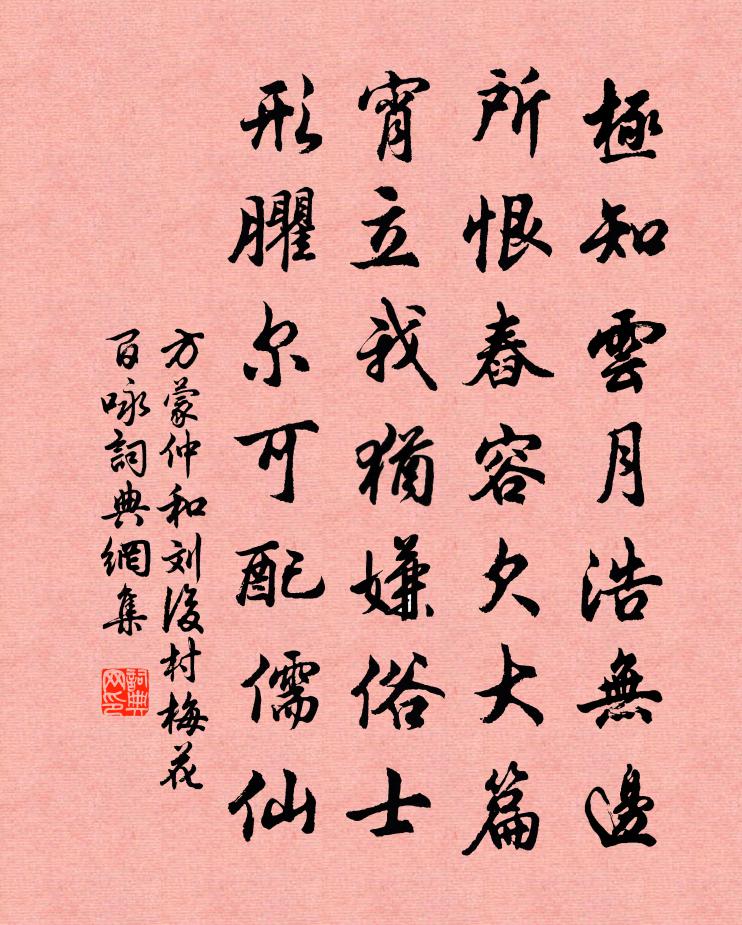 極知雲月浩無邊
所恨舂容欠大篇
宵立我猶嫌俗士
形臞尔可配儒仙
方蒙仲和刘後村梅花
百咏詞典網集
詞典
网印